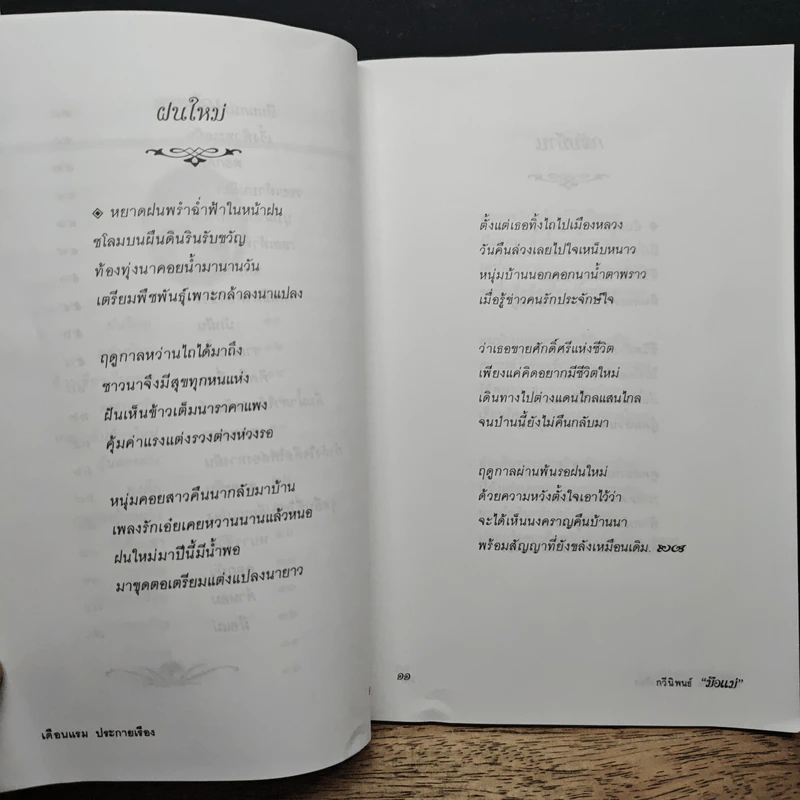 ฝนใหม่
หยาดฝนพรำฉ่ำฟ้าในหน้าฝน
ชโลมบนผืนดินรินรับขวัญ
ท้องทุ่งนาคอยน้ำมานานวัน
เตรียมพืชพันธุ์เพาะกล้าลงนาแปลง
ฤดูกาลหว่านไถได้มาถึง
ชาวนาจึงมีสุขทุกหนแห่ง
ฝันเห็นข้าวเต็มนาราคาแพง
คุ้มค่าแรงแต่งรวงต่างห่วงรอ
หนุ่มคอยสาวคืนนากลับมาบ้าน
เพลงรักเอ๋ยเคยหวานนานแล้วหนอ
ฝนใหม่มาปีนี้มีน้ำพอ
มาขุดตอเตรียมแต่งแปลงนายาว
เดือนแรม ประกายเรือง
ตั้งแต่เธอทิ้งไถไปเมืองหลวง
วันคืนล่วงเลยไปใจเหน็บหนาว
หนุ่มบ้านนอกคอกนาน้ำตาพราว
เมื่อรู้ข่าวคนรักประจักษ์ใจ
ว่าเธอขายศักดิ์ศรีแห่งชีวิต
เพียงแค่คิดอยากมีชีวิตใหม่
เดินทางไปต่างแดนไกลแสนไกล
จนป่านนี้ยังไม่คืนกลับมา
ฤดูกาลผ่านพ้นรอฝนใหม่
ด้วยความหวังตั้งใจเอาไว้ว่า
จะได้เห็นนงคราญคืนบ้านนา
พร้อมสัญญาที่ยังขลังเหมือนเดิม.
๑๑
กวีนิพนธ์ "มือแม่"